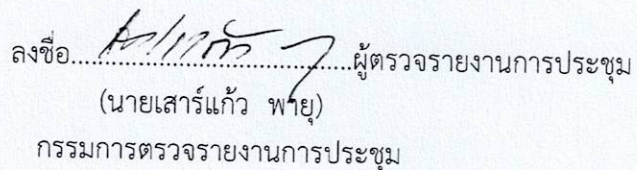 ลงชื่อ..................................ผู้ตรวจรายงานการประชุม
(นายเสาร์แก้ว พายุ)
กรรมการตรวจรายงานการประชุม